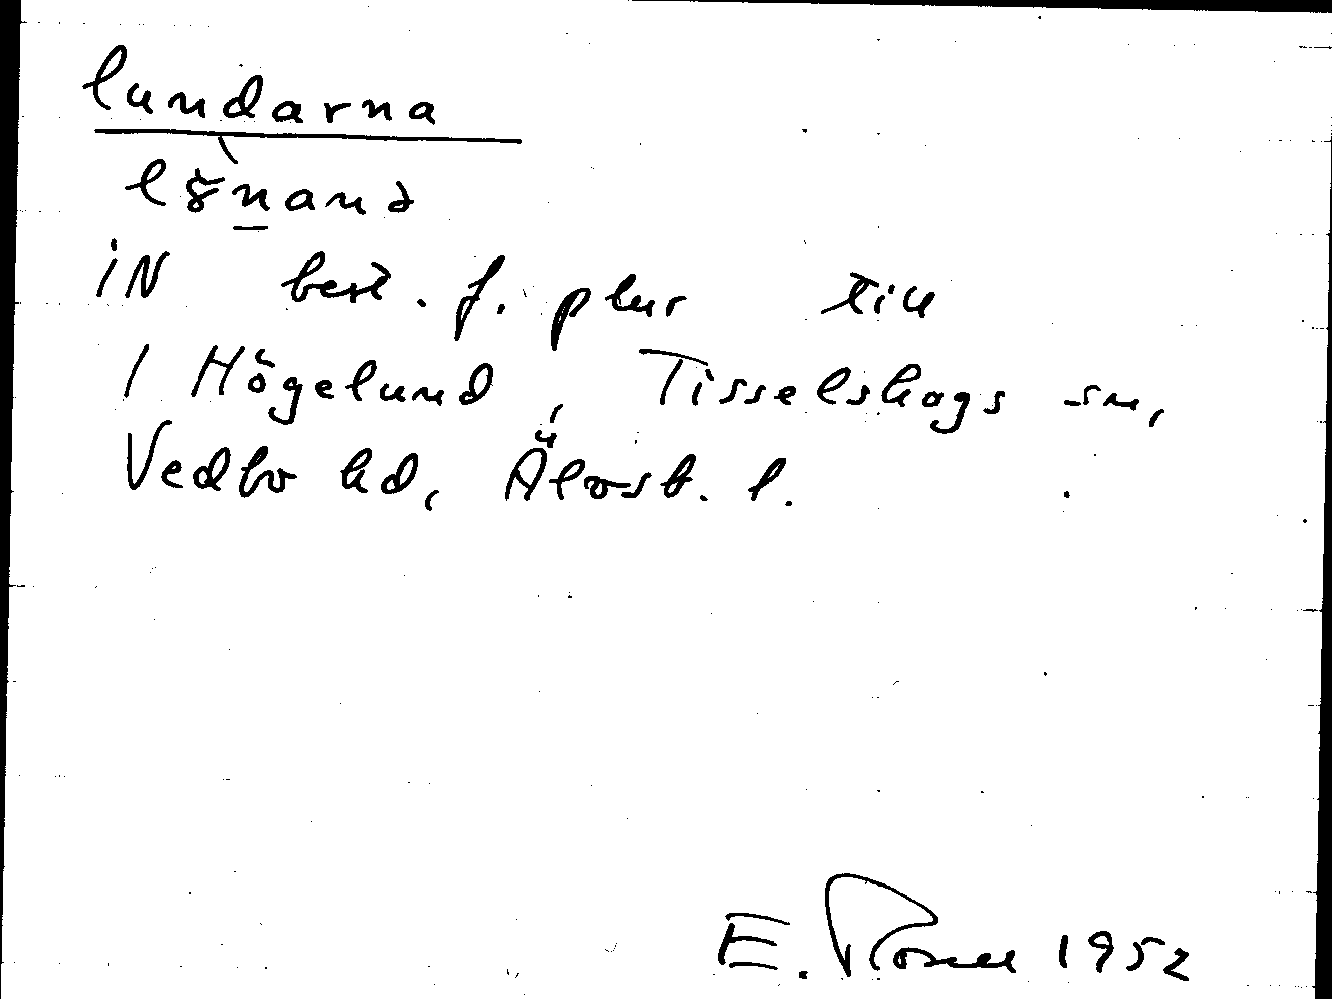 lundarna
iN best. f. plur till
1 Högelund, Tisselskogs sn,
Vedbo hd, Älvsb. l.
E. Rosell 1952